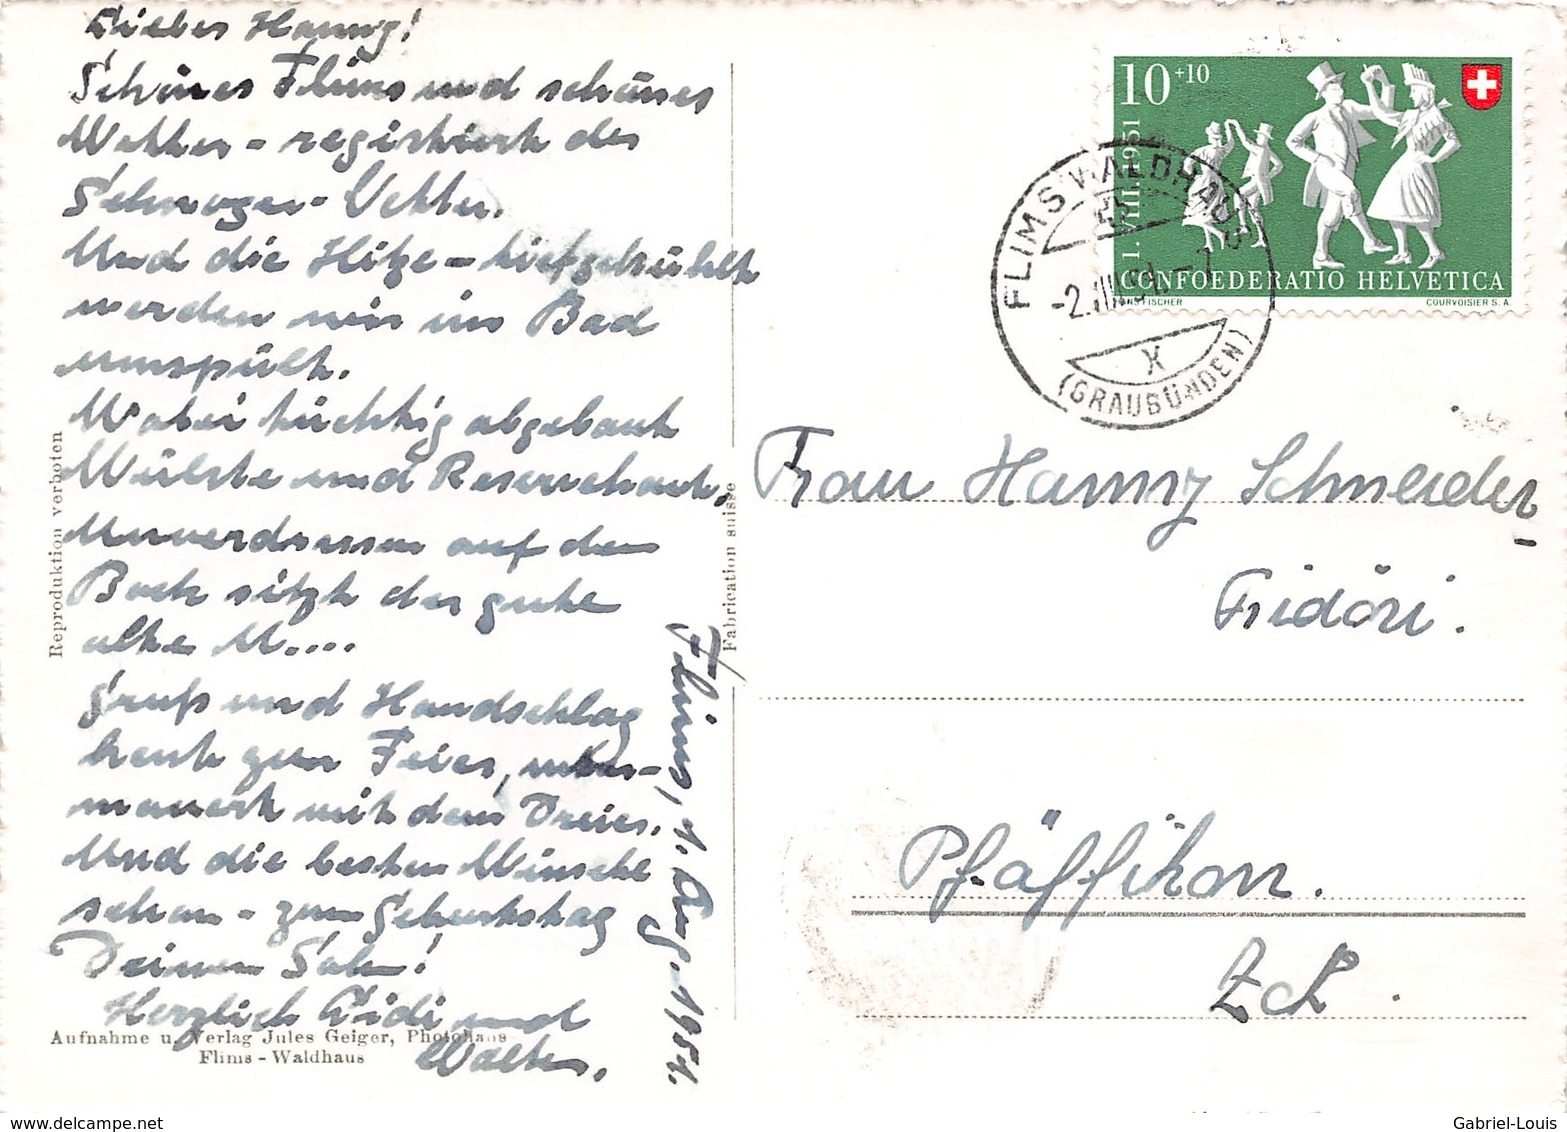 Lieber Hanny!
Schönes Flims und schönes
Wetter - registriert der
Schwoger-Vetter.
Und die Hitze - tiefgekühlt
werden wir im Bad
umspült.
Wobei tüchtig abgebaut
Wülste und Reservehaut.
Unverdrossen auf dem
Bock sitzt der gute
alte M....
Gruß und Handschlag
heut zur Feier,
mit dem Dreier.
Und die besten Wünsche
schon - zum Geburtstag
Deinem Sohn!
Herzlich Lidi und
Walter.
Flims, 1. Aug. 1951.
Aufnahme u. Verlag Jules Geiger, Photohaus
Flims - Waldhaus
Reproduktion verboten
Fabrication suisse
10+10
1. VIII. 1951
CONFOEDERATIO HELVETICA
HANS FISCHER
COURVOISIER S.A.
FLIMS WALDHAUS
-2.VIII.51.-7
(GRAUBÜNDEN)
Frau Hanny Schneider-
Fridöri.
Pfäffikon.
Zch.
www.delcampe.net
Gabriel-Louis